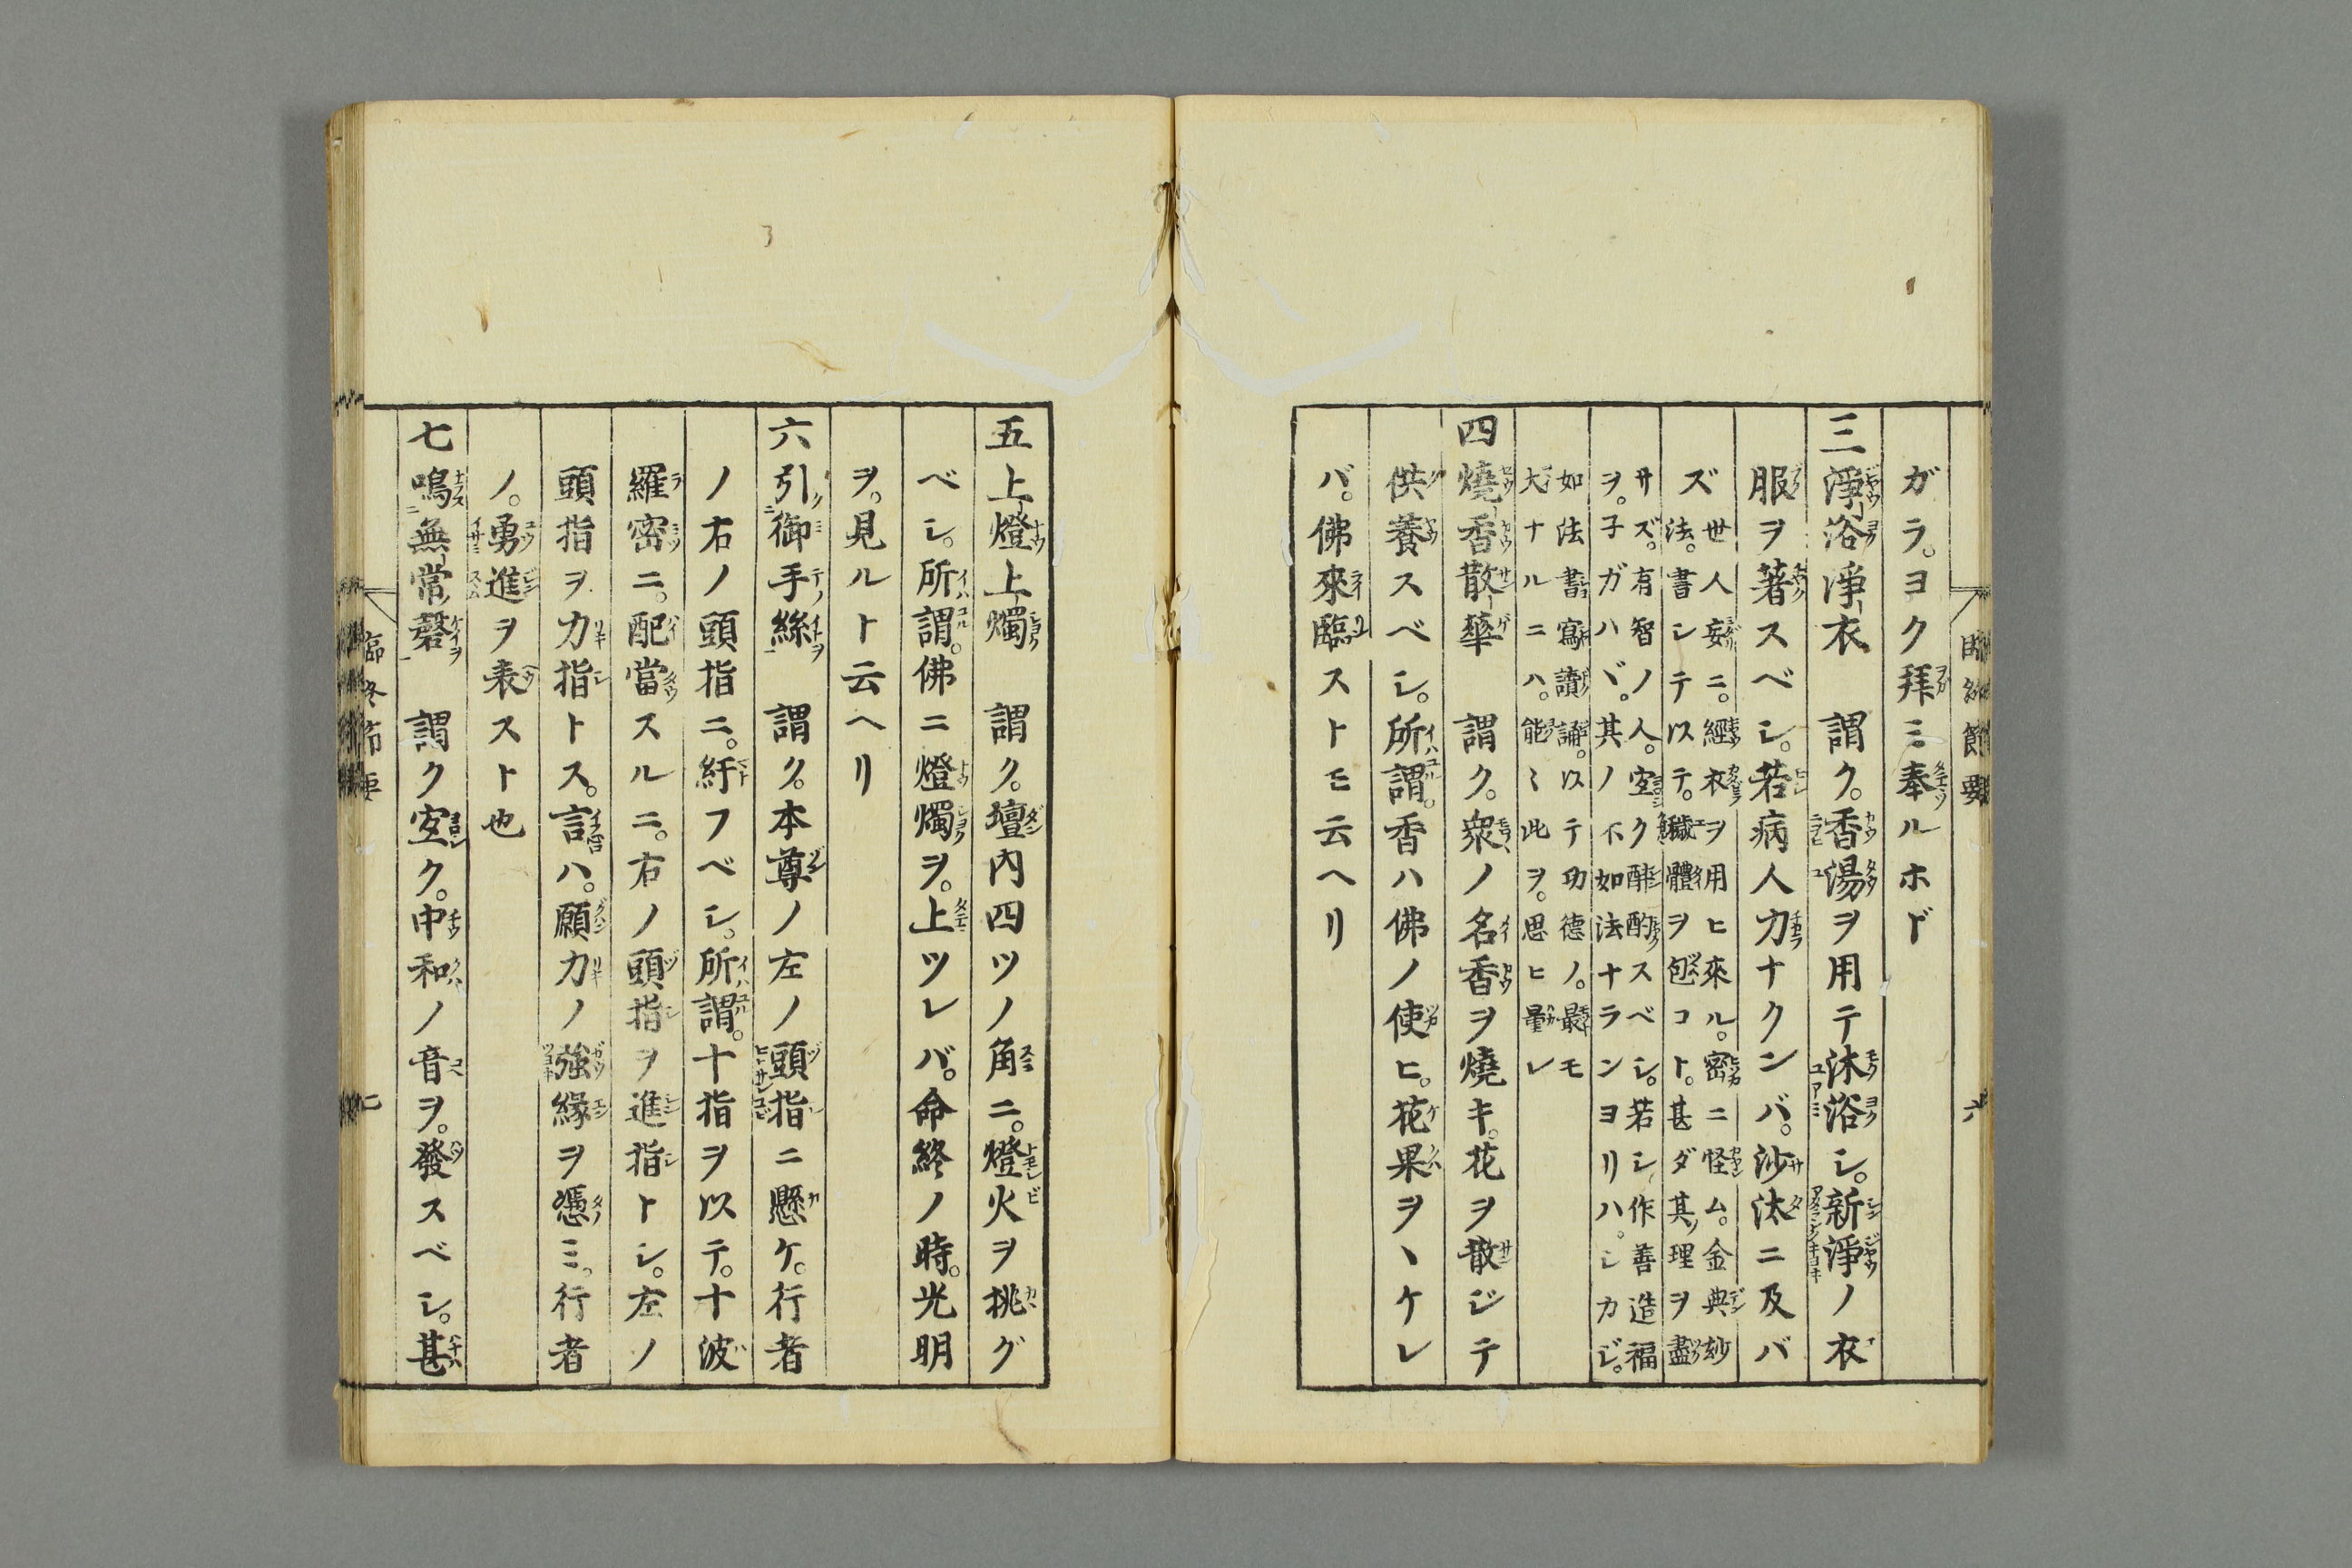 臨終節要
六
ガラ。ヨク拜ミ奉ルホド
三淨浴淨衣 謂ク。香湯ヲ用テ沐浴シ。新淨ノ衣
服ヲ著スベシ。若病人力ナクンバ。沙汰ニ及バ
ズ
世人妄ニ。經衣ヲ用ヒ來ル。密ニ怪ム。金典紗
法。書シテ以テ。穢體ヲ包コト。甚ダ其理ヲ盡
サズ。有智ノ人。空ク酙酌スベシ。若シ作善造福
ヲ。子ガハヾ。其ノ不如法ナランヨリハ。シカジ。
如法書寫讀誦。以テ功德ノ。最モ
大ナルニハ。能ミ此ヲ。思ヒ量レ
四燒香散華 謂ク。衆ノ名香ヲ燒キ。花ヲ散ジテ
供養スベシ。所謂。香ハ佛ノ使ヒ。花果ヲヽケレ
バ。佛來臨ストモ云ヘリ
五上燈上燭 謂ク。壇內四ツノ角ニ。燈火ヲ挑グ
ベシ。所謂。佛ニ燈燭ヲ。上ツレバ。命終ノ時。光明
ヲ。見ルト云ヘリ
六引御手絲 謂ク。本尊ノ左ノ頭指ニ懸ケ。行者
ノ右ノ頭指ニ。紆フベシ。所謂。十指ヲ以テ。十波
羅密ニ。配當スルニ。右ノ頭指ヲ進指トシ。左ノ
頭指ヲ力指トス。言ハ。願力ノ強緣ヲ憑ミ。行者
ノ。勇進ヲ表スト也
七鳴無常磬 謂ク空ク。中和ノ音ヲ。發スベシ。甚
臨終節要
七